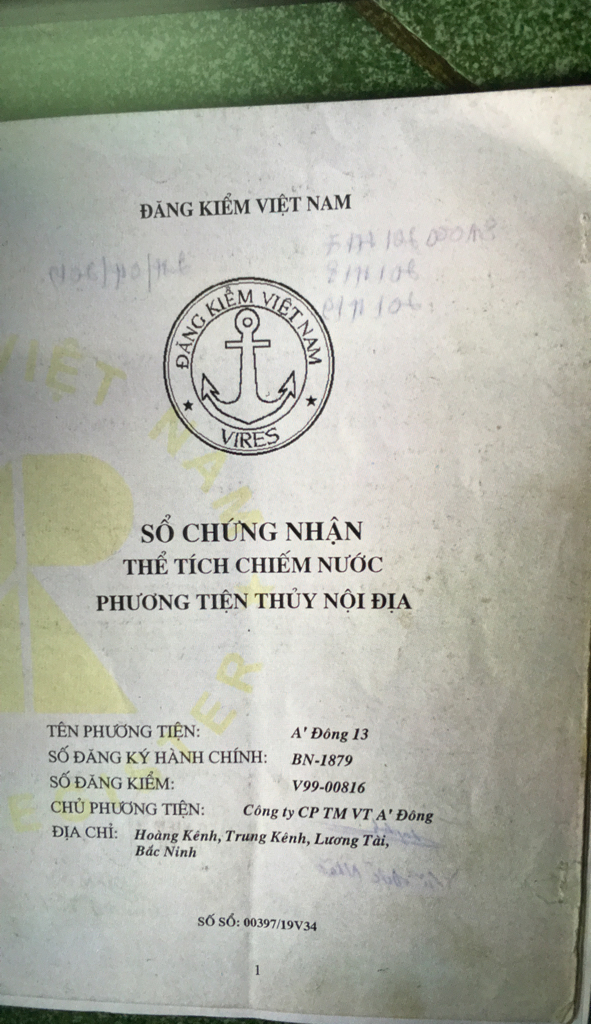 ĐĂNG KIỂM VIỆT NAM
ĐĂNG KIỂM VIỆT NAM
VIRES
VIỆT NAM
SỔ CHỨNG NHẬN
THỂ TÍCH CHIẾM NƯỚC
PHƯƠNG TIỆN THỦY NỘI ĐỊA
TÊN PHƯƠNG TIỆN: A' Đông 13
SỐ ĐĂNG KÝ HÀNH CHÍNH: BN-1879
SỐ ĐĂNG KIỂM: V99-00816
CHỦ PHƯƠNG TIỆN: Công ty CP TM VT A' Đông
ĐỊA CHỈ: Hoàng Kênh, Trung Kênh, Lương Tài,
Bắc Ninh
SỐ SỔ: 00397/19V34
1